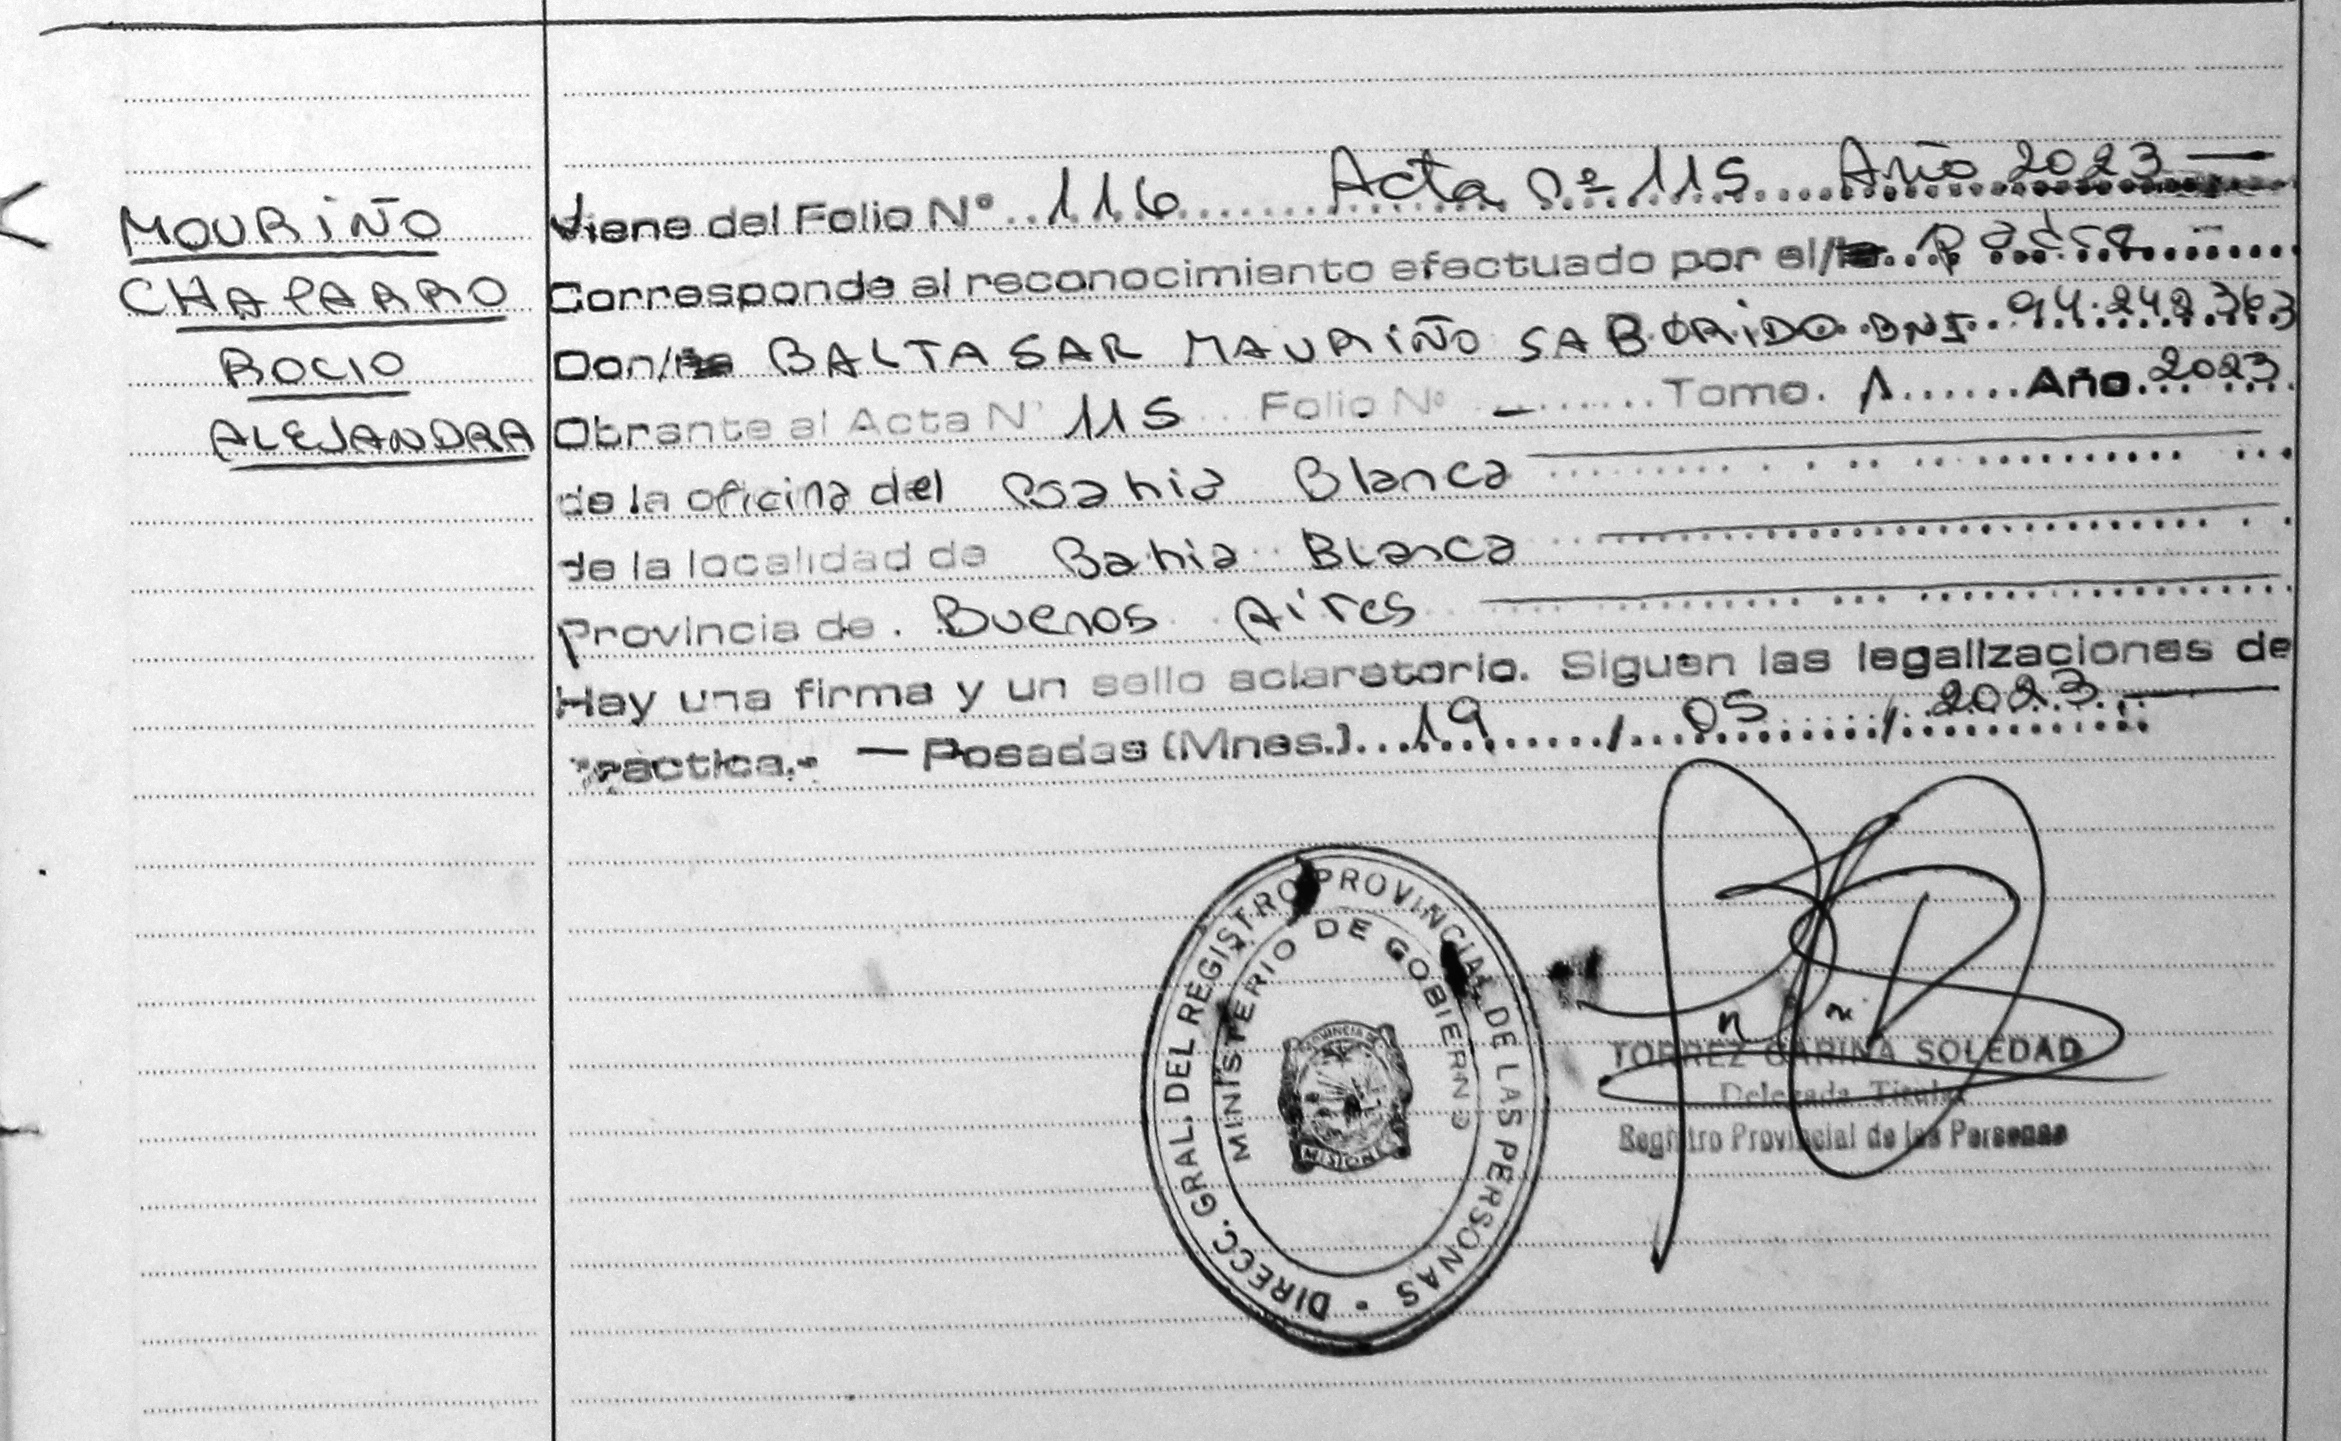 MOURIÑO
CHAPARRO
ROCIO
ALEJANDRA
Viene del Folio N° 116 Acta nº 115 Año 2023 —
Corresponde al reconocimiento efectuado por el/la Padre
Don/ña BALTASAR MAURIÑO SABORIDO DNI 94.242.363
Obrante al Acta N° 115 Folio N° — Tomo. 1 Año 2023
de la oficina del Bahia Blanca
de la localidad de Bahia Blanca
Provincia de. Buenos Aires
Hay una firma y un sello aclaratorio. Siguen las legalizaciones de
práctica.- — Posadas (Mnes.) 19 / 05 / 2023 —
DIRECC. GRAL. DEL REGISTRO PROVINCIAL DE LAS PERSONAS
MINISTERIO DE GOBIERNO
PROVINCIA DE
MISIONES
TORREZ CARINA SOLEDAD
Delegada Titular
Registro Provincial de las Personas